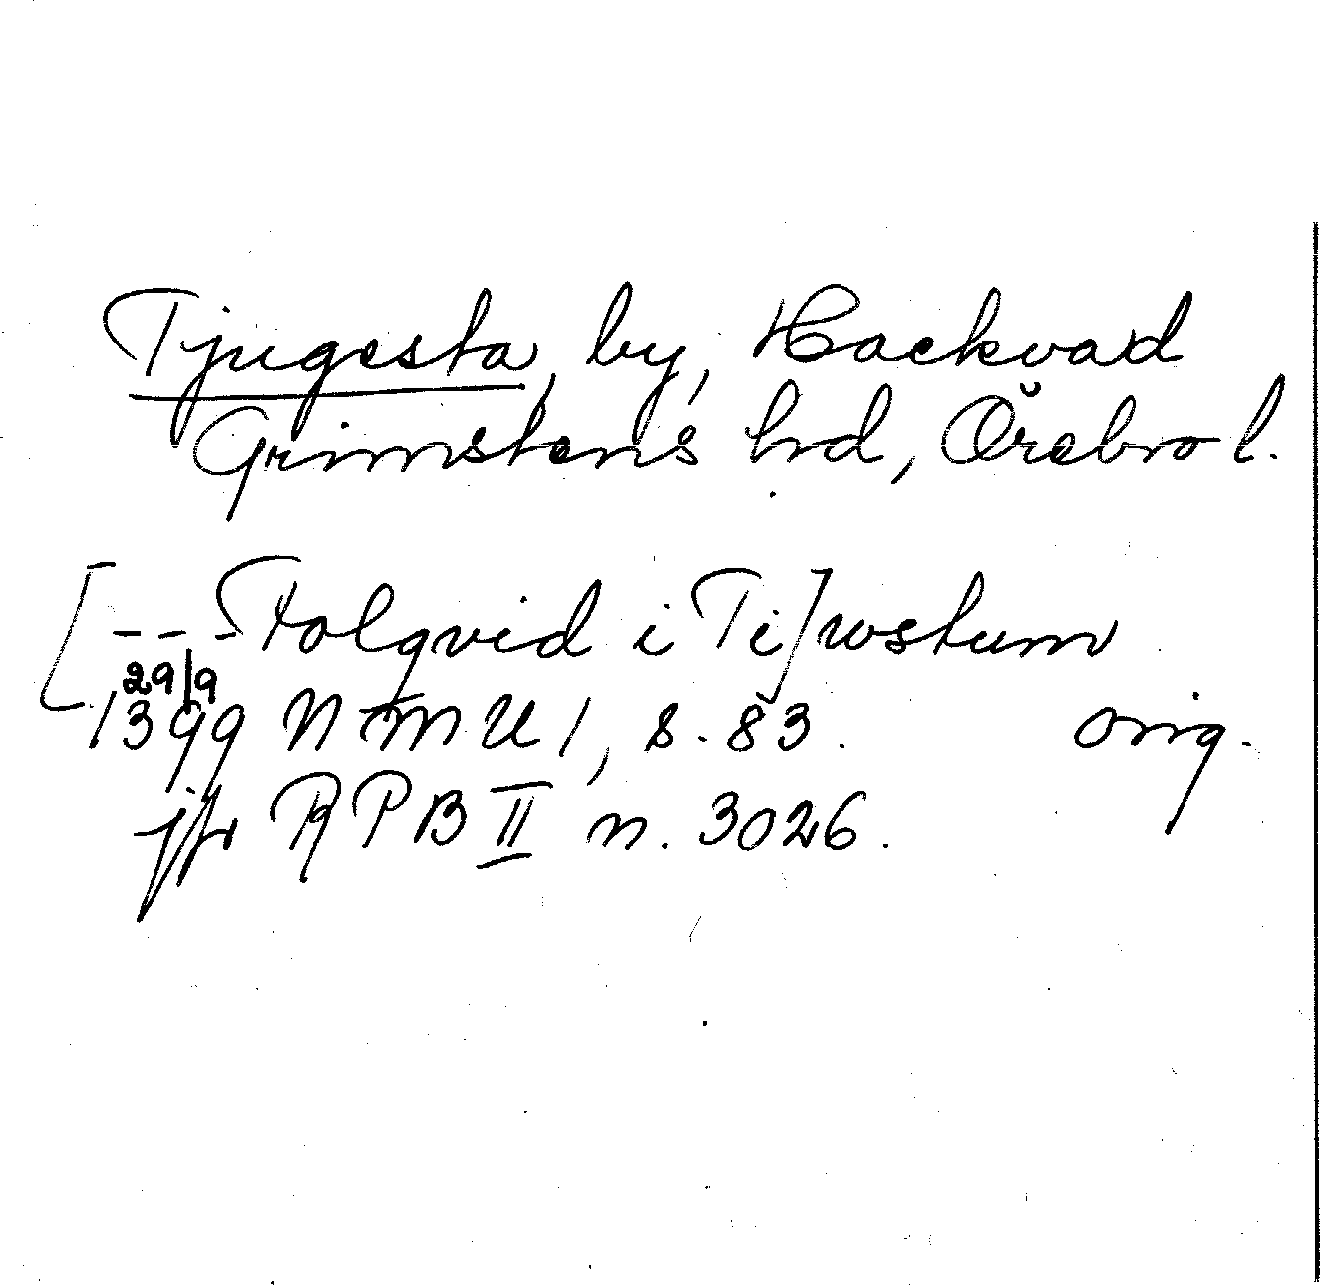 Tjugesta, by, Hackvad
Grimstens hd, Örebro l.
[--- Folqvid i Ti]wstum
29/9
1399 NMU 1, s. 83. orig.
jfr RPB II n. 3026.